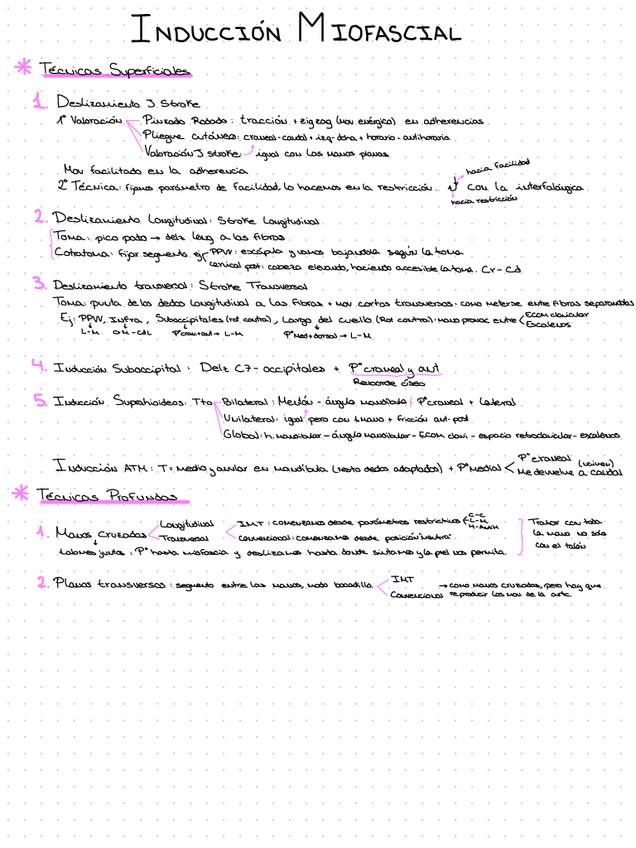 INDUCCIÓN MIOFASCIAL
* Técnicas Superficiales
1. Deslizamiento J Stroke
1º Valoración Pinzado Rodado: tracción + zigzag (mov enérgico) en adherencias
Pliegue cutáneo: craneal-caudal + izq-dcha + horario-antihorario
Valoración J stroke igual con las manos planas
Mov facilitado en la adherencia
hacia facilidad
2º Técnica: fijamos parámetro de facilidad, lo hacemos en la restricción.. con la interfalángica
hacia restricción
2. Deslizamiento Longitudinal: Stroke Longitudinal
Toma: pico pato → dslz long a las fibras
Cotratoma: fijar segmento ej PPVV: escápula y vamos bajándola según la toma
cervical post: cabeza elevando, haciendo accesible la toma. Cr-Cd
3. Deslizamiento transversal: Stroke Transversal
Toma: punta de los dedos longitudinal a las fibras + mov cortos transversos: como meterse entre fibras separándolas
Ej: PPVV, Infra, Suboccipitales (rot contral), Largo del cuello (Rot contral): mano pronac entre Ecom clavicular
Escalenos
L-M L-M Pº med+dorsal → L-M
4. Inducción Suboccipital: Dslz C7-occipitales + Pº craneal y ant
Reborde óseo
5. Inducción Suprahioideos: Tto Bilateral: Mentón - ángulo mandíbula Pº craneal + lateral
Unilateral: igual pero con 1 mano + fricción ant-post
Global: h. mandibular - ángulo mandibular - Ecom clavi - espacio retroclavicular - escalenos
Inducción ATM: T= medio y anular en mandíbula (resto dedos adaptados) + Pº medial Pº craneal
Me devuelve a caudal
* Técnicas Profundas
1. Manos Cruzadas Longitudinal IMT: comenzamos desde parámetros restrictivos C-C
L-M
Transversal convencional: comenzamos desde posición neutra
Talones juntos: Pº hasta miofascia y deslizamos hasta donde sintamos y la piel nos permita.
Tratar con toda
la mano no solo
con el talón
2. Planos transversos: segmento entre las manos, modo bocadillo IMT
Convencional → como manos cruzadas, pero hay que
reproducir los mov de la artc